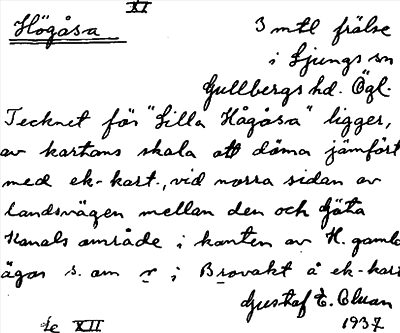 XI
Högåsa 3 mtl frälse
i Ljungs sn
Gullbergs hd. Ögl.
Tecknet för "Lilla Hågåsa" ligger,
av kartans skala att döma jämfört
med ek-kart., vid norra sidan av
landsvägen mellan den och Göta
Kanals område i kanten av H. gamla
ägor s. om r i Brovakt å ek-kart
Gustaf E. 
1937
XII